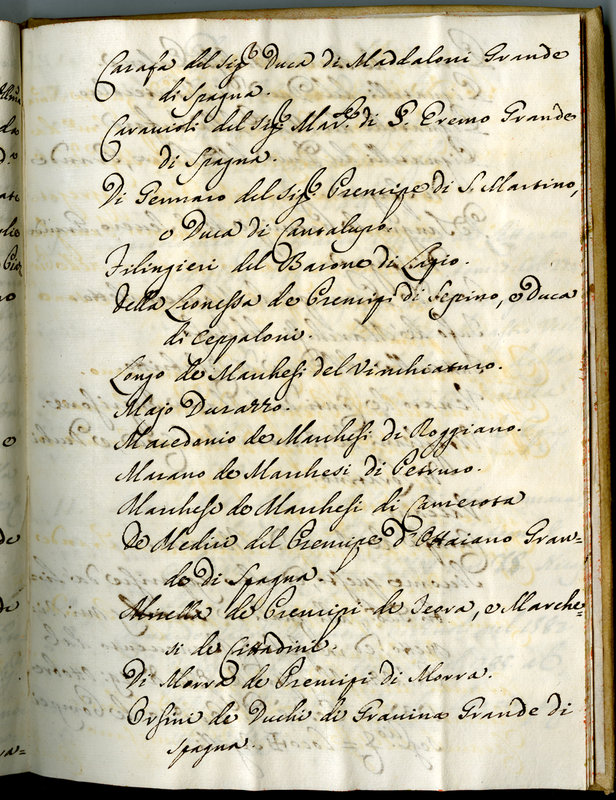 Carafa del Sig.r Duca di Maddaloni Grande
di Spagna.
Caraccioli del Sig.r Mar.se di S. Eremo Grande
di Spagna.
Di Gennaro del Sig.r Prencipe di S. Martino,
e Duca di Cantalupo.
Filingieri del Barone di Lapio.
Della Leonessa de Prencipi di Sepino, e Duca
di Ceppaloni.
Longo de Marchesi del Vinchiaturo.
Majo Durazzo.
Macedonio de Marchesi di Roggiano.
Marano de Marchesi di Petruro.
Marchese de Marchesi di Camerota
De Medici del Prencipe d'Ottaiano Gran=
de di Spagna.
Mirella de Prencipi di Teora, e Marche=
si de Cittadini.
Di Morra de Prencipi di Morra.
Orsini de Duchi di Gravina Grande di
Spagna.